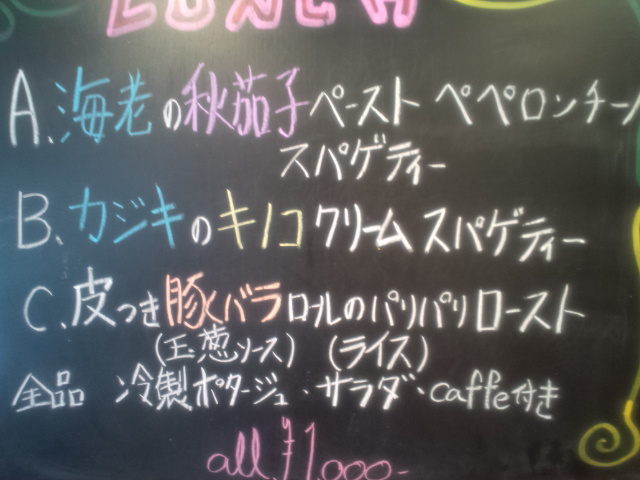 LUNCH
A. 海老の秋茄子ペースト ペペロンチーノ
スパゲティー
B. カジキのキノコクリームスパゲティー
C. 皮つき豚バラロールのパリパリロースト
(玉葱ソース) (ライス)
全品 冷製ポタージュ・サラダ・caffe付き
all ¥1,000-